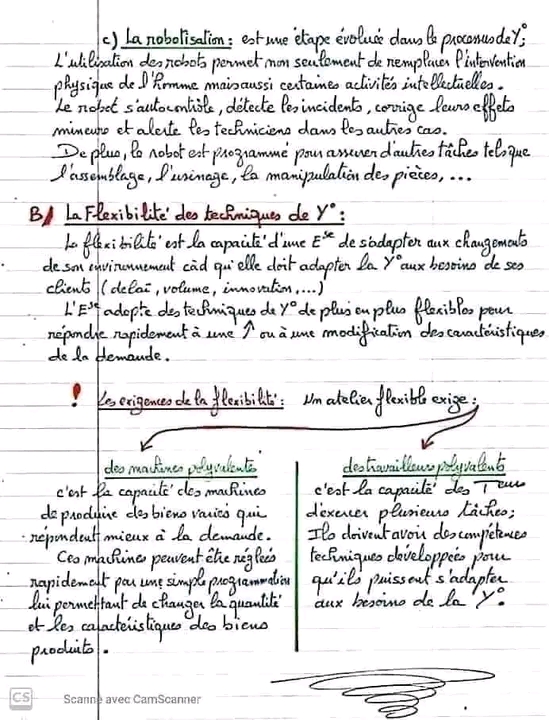 c) La robotisation : est une étape évoluée dans le processus de Y° ;
L'utilisation des robots permet non seulement de remplacer l'intervention
physique de l'Homme mais aussi certaines activités intellectuelles.
Le robot s'autocontrôle, détecte les incidents, corrige leurs effets
mineurs et alerte les techniciens dans les autres cas.
De plus, le robot est programmé pour assurer d'autres tâches tels que
l'assemblage, l'usinage, la manipulation des pièces, ...
B/ La Flexibilité des techniques de Y° :
La flexibilité est la capacité d'une Ese de s'adapter aux changements
de son environnement càd qu'elle doit adapter la Y° aux besoins de ses
clients (delai, volume, innovation, ...)
L'Ese adopte des techniques de Y° de plus en plus flexibles pour
répondre rapidement à une ↑ ou à une modification des caractéristiques
de la demande.
! Les exigences de la flexibilité : Un atelier flexible exige :
des machines polyvalentes
c'est la capacité des machines
de produire des biens variés qui
répondent mieux à la demande.
Ces machines peuvent être réglées
rapidement par une simple programmation
lui permettant de changer la quantité
et les caractéristiques des biens
produits.
des travailleurs polyvalents
c'est la capacité des Teurs
d'exercer plusieurs tâches ;
Ils doivent avoir des compétences
techniques développées pour
qu'ils puissent s'adapter
aux besoins de la Y°.
CS Scanné avec CamScanner